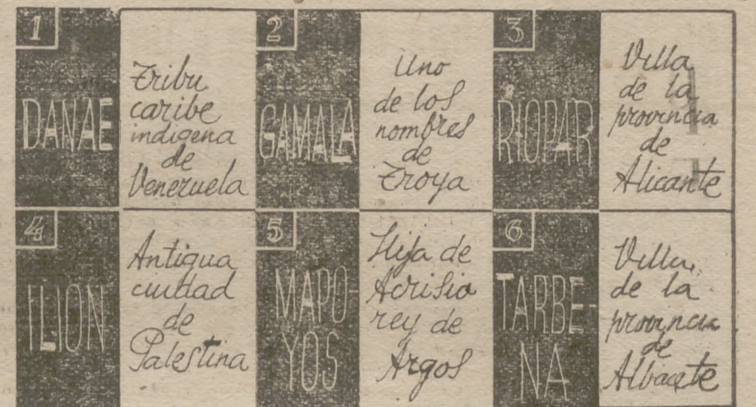 1
DANAE
Tribu
caribe
indigena
de
Venezuela
2
GAMALA
Uno
de los
nombres
de
Troya
3
RIOPAR
Villa
de la
provincia
de
Alicante
4
ILION
Antigua
ciudad
de
Palestina
5
MAPO-
YOS
Hija de
Acrisio
rey de
Argos
6
TARBE-
NA
Villa
de la
provincia
de
Albacete